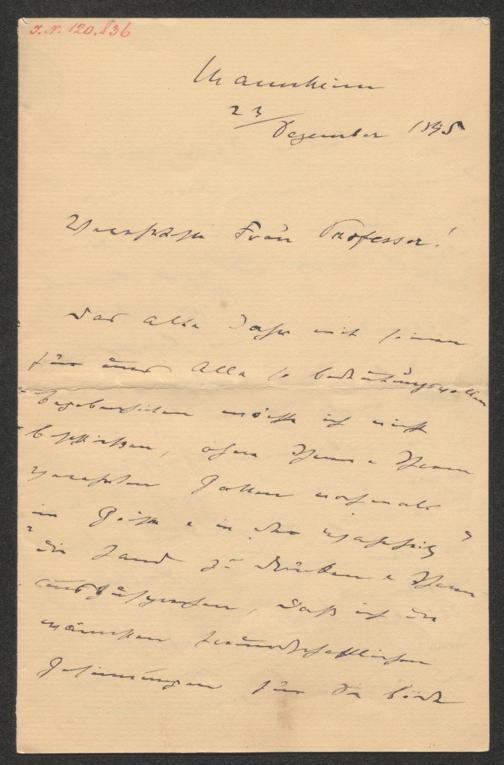 J.N. 120.836
Mannheim
23/
Dezember 1895
Verehrteste Frau Professor!
Das alte Jahr mit seinen
für uns Alle so bedeutungsvollen
Begebenheiten möchte ich nicht
beschließen, ohne Ihnen & Ihrem
verehrten Gatten nochmals
im Geiste & in der
die Hand zu drücken & Ihnen
auszusprechen, daß ich die
wärmsten freundschaftlichen
Gesinnungen für Sie beide